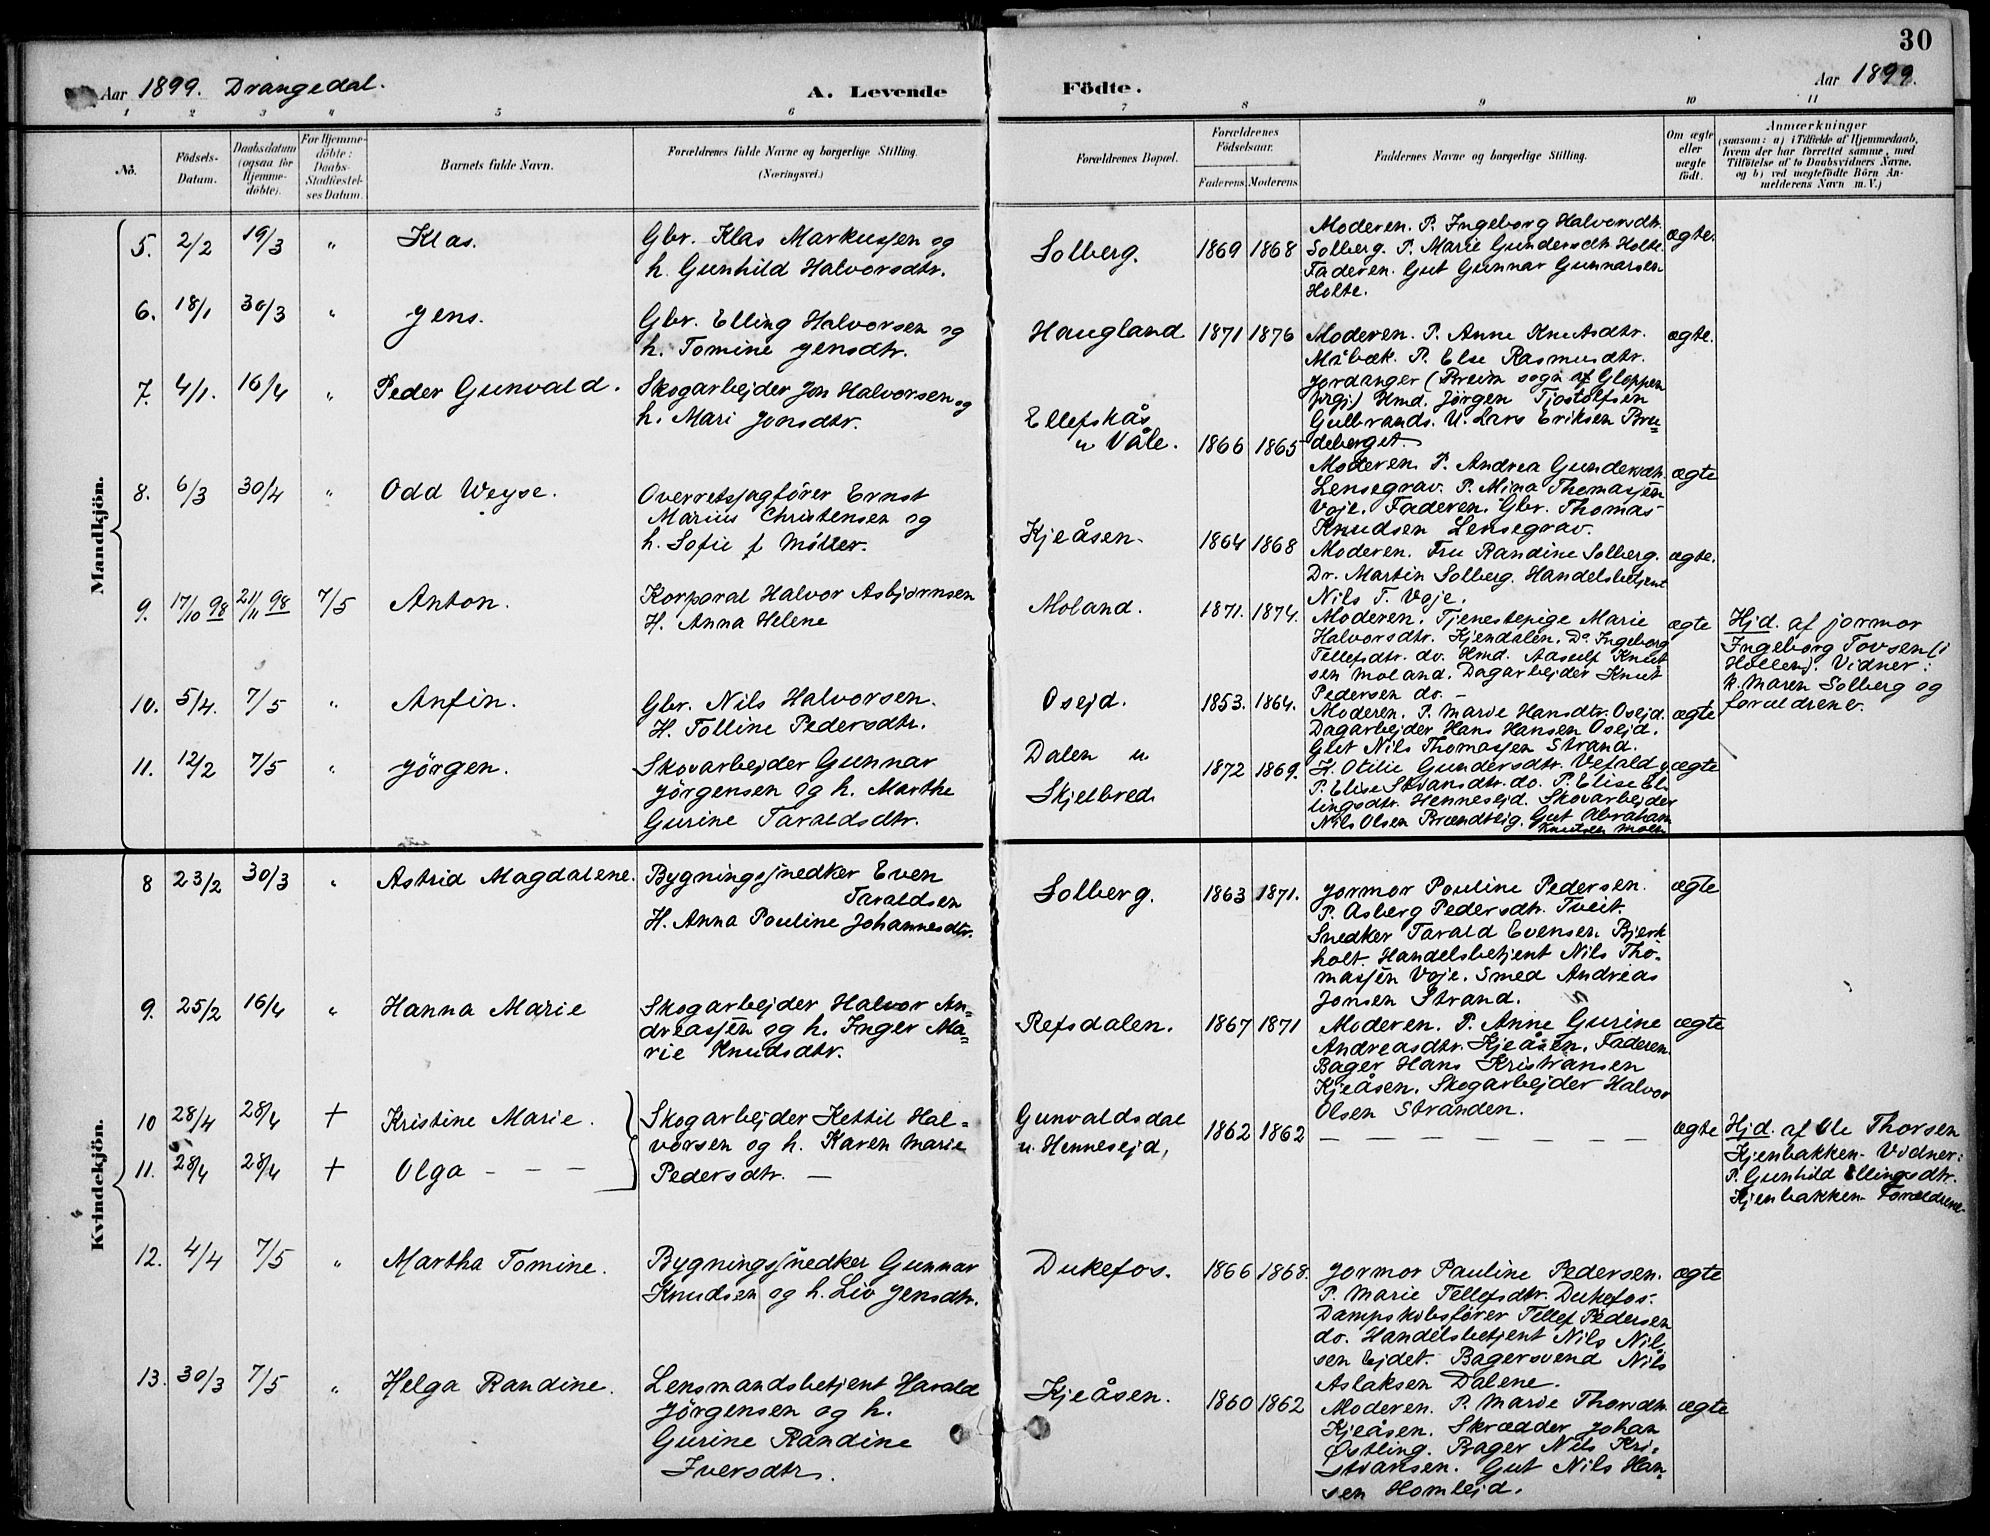 30
Aar 1899. Drangedal.
A. Levende
Födte.
Aar 1899.
1 2 3 4 5 6 7 8 9 10 11
No.
Födsels-
Datum.
Daabsdatum
(ogsaa for
Hjemme-
döbte).
For Hjemme-
döbte:
Daabs-
Stadfæstel-
ses Datum.
Barnets fulde Navn.
Forældrenes fulde Navne og borgerlige Stilling.
(Næringsvei.)
Forældrenes Bopæl.
Forældrenes
Födselsaar.
Faderens Moderens
Faddernes Navne og borgerlige Stilling.
Om ægte
eller
uægte
födt.
Anmærkninger
(saasom: a) i Tilfælde af Hjemmedaab,
hvem der har forrettet samme, med
Tilföielse af to Daabsvidners Navne,
og b) ved uægtefödte Börn An-
melderens Navn m. V.)
Mandkjön.
5. 2/2 19/3 " Klas.
Gbr. Klas Markussen og
h. Gunhild Halvorsdtr.
Solberg. 1869 1868
Moderen. P. Ingeborg Halvorsdtr.
Solberg. P. Marie Gundersdtr. Holte.
Faderen. Gut Gunnar Gunnarsen
Holte.
ægte.
6. 18/1 30/3 " Jens.
Gbr. Elling Halvorsen og
h. Tomine Jensdtr.
Haugland 1871 1876
Moderen. P. Anne Knutsdtr.
Måbæk. P. Else Rasmusdtr.
Jordanger (Breim sogn af Gloppen
prgj.) Hmd. Jörgen Tjostolfsen
Gulbrands. U. Lars Eriksen Bru-
deberget.
ægte.
7. 4/1. 16/4 " Peder Gunvald.
Skogarbejder Jon Halvorsen og
h. Mari Jonsdtr.
Ellefskås
u Våle. 1866 1865
Moderen. P. Andrea Gundersdtr.
Lensegrav. P. Mina Thomassen
Voje. Faderen. Gbr. Thomas
Knudsen Lensegrav.
ægte
8. 6/3 30/4 " Odd Weyse.
Overretssagfører Ernst
Marius Christensen og
h. Sofie f Møller.
Kjeåsen. 1864 1868
Moderen. Fru Randine Solberg.
Dr. Martin Solberg. Handelsbetjent
Nils T. Voje.
ægte.
9. 17/10 98 21/11 98 7/5 Anton.
Korporal Halvor Asbjørnsen
H. Anna Helene
Moland. 1871. 1874.
Moderen. Tjenestepige Marie
Halvorsdtr. Kjendalen. Do Ingeborg
Tellefsdtr. do. Hmd. Aasulf Knut
sen Moland. Dagarbejder Knut
Pedersen do. -
ægte
Hjd. af jormor
Ingeborg Tovsen (i
Hollen). Vidner:
k. Maren Solberg og
forældrene.
10. 5/4. 7/5 " Anfin.
Gbr. Nils Halvorsen.
H. Tolline Pedersdtr.
Osejd. 1853. 1864.
Moderen. P. Marie Hansdtr. Osejd.
Dagarbejder Hans Hansen Osejd.
Gut Nils Thomassen Strand.
ægte
11. 12/2 7/5 " Jörgen.
Skovarbejder Gunnar
Jörgensen og h. Marthe
Gurine Taraldsdtr.
Dalen u
Skjelbred. 1872 1869.
K. Otilie Gundersdtr. Vefald,
P. Elise do. P. Elise El-
lingsdtr. Hennesejd. Skovarbejder
Nils Olsen Brændtejg. Gut Abraham
Knutsen Moen
ægte
Kvindekjön.
8 23/2 30/3 " Astrid Magdalene.
Bygningssnedker Even
Taraldsen
H. Anna Pouline Johannesdtr.
Solberg. 1863 1871.
Jormor Pouline Pedersen.
P. Asberg Pedersdtr. Tveit.
Snedker Tarald Evensen Bjerk
holt. Handelsbetjent Nils Tho-
massen Voje. Smed Andreas
Jonsen Strand.
ægte
9. 25/2 16/4 " Hanna Marie
Skogarbejder Halvor An-
dreassen og h. Inger Ma-
rie Knudsdtr.
Refsdalen. 1867 1871
Moderen. P. Anne Gurine
Andreasdtr. Kjeåsen. Faderen.
Bager Hans Kristiansen
Kjeåsen. Skogarbejder Halvor
Olsen Stranden.
ægte
10 28/4 28/4 + Kristine Marie.
11. 28/4 28/4 + Olga - - -
Skogarbejder Kettil Hal-
vorsen og h. Karen Marie
Pedersdtr. -
Gunvaldsdal
u. Hennesejd, 1862 1862
- - - - - - - -
ægte
Hjd. af Ole Thorsen
Kjenbakken. Vidner:
P. Gunhild Ellingsdtr.
Kjenbakken Forældrene.
12. 4/4 7/5 " Martha Tomine.
Bygningssnedker Gunnar
Knudsen og h. Liv Jensdtr.
Dukefos. 1866 1868.
Jormor Pauline Pedersen.
P. Marie Tellefsdtr. Dukefos.
Dampskibsfører Tellef Pedersen
do. Handelsbetjent Nils Nil
sen Ejdet. Bagersvend Nils
Aslaksen Dalene.
ægte
13. 30/3 7/5 " Helga Randine.
Lensmandsbetjent Harald
Jörgensen og h.
Gurine Randine
Iversdtr.
Kjeåsen. 1860 1862
Moderen. P. Marie Thorsdtr.
Kjeåsen. Skrædder Johan
Østling. Bager Nils Kri-
stiansen. Gut Nils Han
sen Homlejd.
ægte